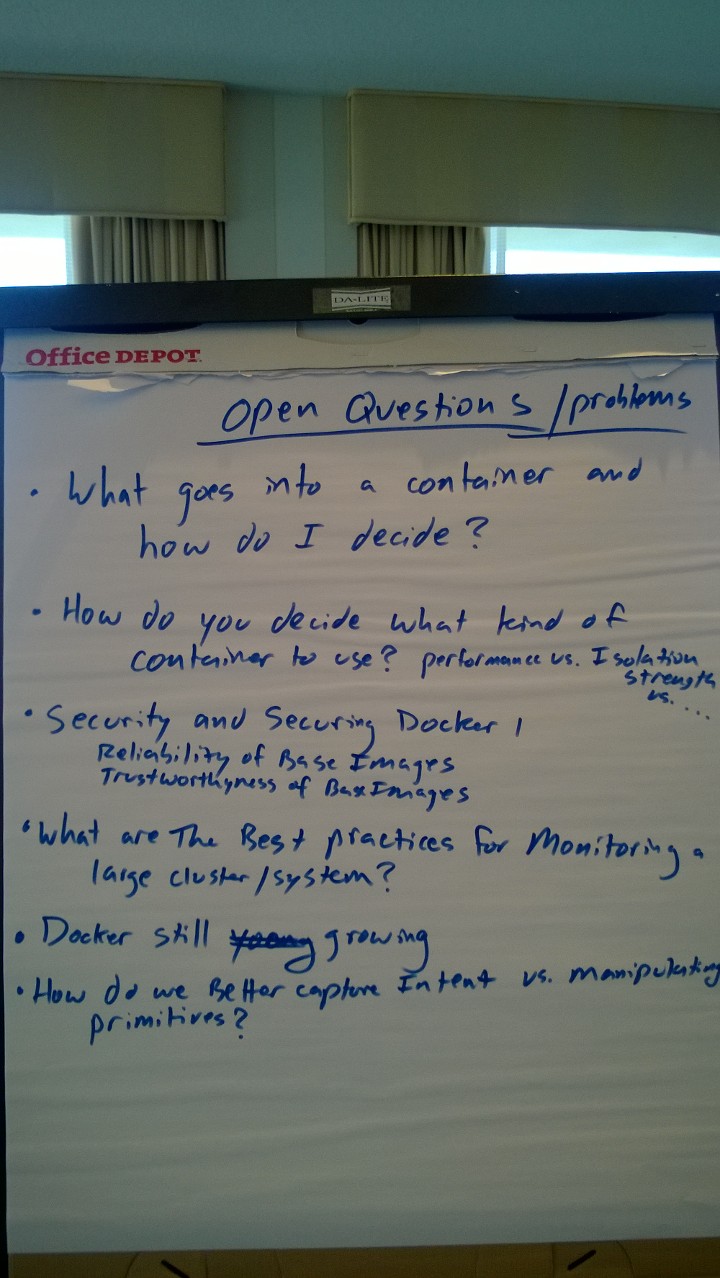 DA-LITE
Office DEPOT
Open Questions/problems
• What goes into a container and
how do I decide?
• How do you decide what kind of
container to use? performance vs. Isolation
strength
vs. ...
• Security and Securing Docker
Reliability of Base Images
Trustworthyness of Base Images
• What are The Best practices for Monitoring a
large cluster/system?
• Docker still young growing
• How do we Better capture Intent vs. manipulating
primitives?